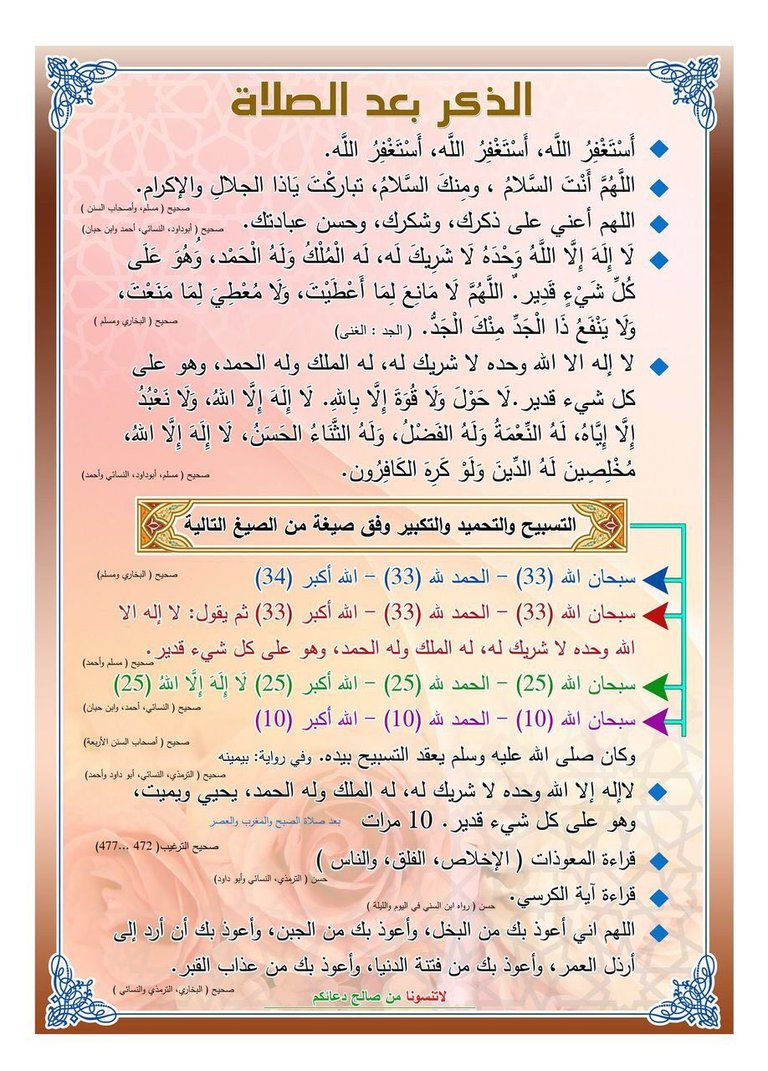 الذكر بعد الصلاة
أَسْتَغْفِرُ اللَّه، أَسْتَغْفِرُ اللَّه، أَسْتَغْفِرُ اللَّه.
اللَّهُمَّ أَنْتَ السَّلامُ ، ومِنكَ السَّلامُ، تباركْتَ يَاذا الجلالِ والإكرام.
صحيح ( مسلم، وأصحاب السنن )
اللهم أعني على ذكرك، وشكرك، وحسن عبادتك.
صحيح ( أبوداود، النسائي، أحمد وابن حبان)
لَا إِلَهَ إِلَّا اللَّهُ وَحْدَهُ لَا شَرِيكَ لَه، لَه الْمُلْكُ وَلَهُ الْحَمْد، وَهُوَ عَلَى
كُلِّ شَيْءٍ قَدِير. اللَّهُمَّ لَا مَانِعَ لِمَا أَعْطَيْتَ، وَلَا مُعْطِيَ لِمَا مَنَعْتَ،
وَلَا يَنْفَعُ ذَا الْجَدِّ مِنْكَ الْجَدُّ. ( الجد : الغنى)
صحيح ( البخاري ومسلم )
لا إله الا الله وحده لا شريك له، له الملك وله الحمد، وهو على
كل شيء قدير.لَا حَوْلَ وَلَا قُوَةَ إِلَّا بِاللهِ. لَا إِلَهَ إِلَّا اللهُ، وَلَا نَعْبُدُ
إِلَّا إِيَّاهُ، لَهُ النِّعْمَةُ وَلَهُ الفَضْلُ، وَلَهُ الثَّنَاءُ الحَسَنُ، لَا إِلَهَ إِلَّا اللهُ،
مُخْلِصِينَ لَهُ الدِّينَ وَلَوْ كَرِهَ الكَافِرُون.
صحيح ( مسلم، أبوداود، النسائي وأحمد)
التسبيح والتحميد والتكبير وفق صيغة من الصيغ التالية
سبحان الله (33) – الحمد لله (33) – الله أكبر (34)
صحيح ( البخاري ومسلم)
سبحان الله (33) – الحمد لله (33) – الله أكبر (33) ثم يقول: لا إله الا
الله وحده لا شريك له، له الملك وله الحمد، وهو على كل شيء قدير.
صحيح ( مسلم وأحمد)
سبحان الله (25) – الحمد لله (25) – الله أكبر (25) لَا إِلَهَ إِلَّا اللهُ (25)
صحيح ( النسائي، أحمد، وابن حبان)
سبحان الله (10) – الحمد لله (10) – الله أكبر (10)
صحيح ( أصحاب السنن الأربعة)
وكان صلى الله عليه وسلم يعقد التسبيح بيده. وفي رواية: بيمينه
صحيح ( الترمذي، النسائي، أبو داود وأحمد)
لاإله إلا الله وحده لا شريك له، له الملك وله الحمد، يحيي ويميت،
وهو على كل شيء قدير. 10 مرات بعد صلاة الصبح والمغرب والعصر
صحيح الترغيب( 472 ...477)
قراءة المعوذات ( الإخلاص، الفلق، والناس )
حسن ( الترمذي، النسائي وأبو داود)
قراءة آية الكرسي.
حسن ( رواه ابن السني في اليوم والليلة )
اللهم اني أعوذ بك من البخل، وأعوذ بك من الجبن، وأعوذ بك أن أرد إلى
أرذل العمر، وأعوذ بك من فتنة الدنيا، وأعوذ بك من عذاب القبر.
صحيح ( البخاري، الترمذي والنسائي )
لاتنسونا من صالح دعائكم